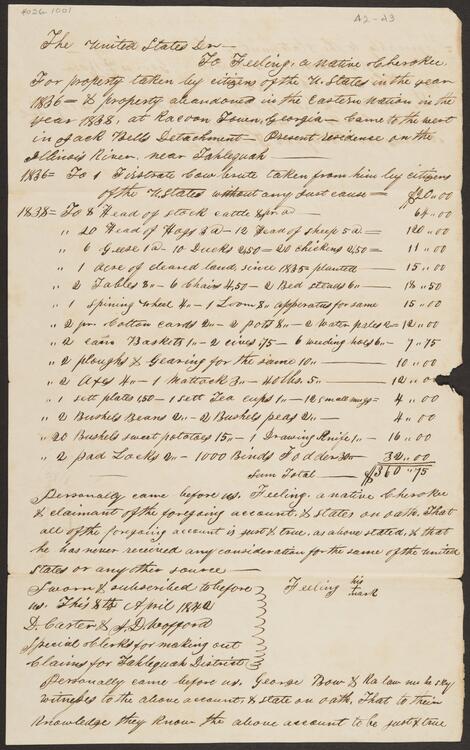 4026.1001
A2-23
The United States Dr —
To Feeling, a native Cherokee.
For property taken by citizens of the U. States in the year
1836 = & property abandoned in the Eastern Nation in the
year 1838, at Racoon Town, Georgia — Came to the west
in Jack Bells Detachment — Present residence on the
Illinois River, near Tahlequah —
1836 = To 1 Firstrate Cow brute taken from him by citizens
of the U. States without any just cause = $20,,00
1838 = To 8 Head of stock cattle 8 pr. a — 64,,00
" 20 Head of Hogs 3 a - 12 Head of sheep 5 a = 120,,00
" 6 Geese 1 a - 10 Ducks 2,50 = 20 chickens 2,50 = 11,,00
" 1 acre of cleared land, since 1835 planted — 15,,00
" 2 Tables 3,, - 6 Chairs 4,50 - 2 Bed steads 6,, — 18,,50
" 1 Spining wheel 4,, - 1 Loom 8,, apperatus for same 15,,00
" 2 pr. Cotton cards 2,, - 2 pots 8,, - 2 Water pales 2,, 12,,00
" 2 cain Baskets 1,, - 2 cives ,75 - 6 weeding hoes 6,, - 7,,75
" 2 ploughs & Gearing for the same 10,, — 10,,00
" 2 Axes 4,, - 1 Mattock 3,, - 40 lbs. 5,, — 12,,00
" 1 sett plates 1,50 - 1 sett Tea cups 1,, - 12 small mugs = 4,,00
" 2 Bushels Beans 2,, - 2 Bushels peas 2,, — 4,,00
" 20 Bushels sweet potatoes 15,, - 1 Drawing Knife 1,, - 16,,00
" 2 pad Locks 2,, - 1000 Binds Fodder 30,, — 32,,00
Sum Total — $360,,75
Personally came before us, Feeling, a native Cherokee
& claimant of the foregoing account, & states on oath, That
all of the foregoing account is just & true, as above stated, & that
he has never received any consideration for the same of the United
States or any other source —
Sworn & subscribed to before
Feeling his
us. This 8th April 1842
mark
D. Carter & J. D. Wofford
Special Clerks for making out
Claims for Tahlequah District
Personally came before us, George Bow &
witnesses to the above account, & state on oath, That to their
knowledge they know the above account to be just & true